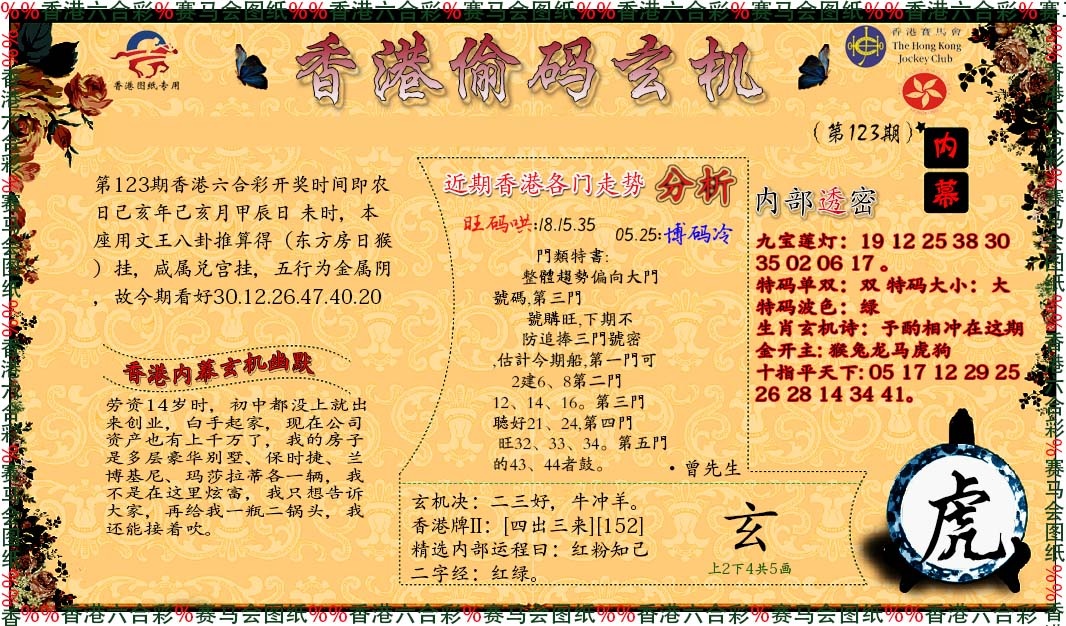 %%香港六合彩%赛马会图纸%%香港六合彩%赛马会图纸%%香港六合彩%赛马会图纸%%香港六合彩%赛
香港图纸专用
香港偷码玄机
香港賽馬會
The Hong Kong
Jockey Club
（第123期）
内
幕
第123期香港六合彩开奖时间即农
日己亥年己亥月甲辰日 未时，本
座用文王八卦推算得（东方房日猴
）挂，咸属兑宫挂，五行为金属阴
，故今期看好30.12.26.47.40.20
香港内幕玄机幽默
劳资14岁时，初中都没上就出
来创业，白手起家，现在公司
资产也有上千万了，我的房子
是多层豪华别墅、保时捷、兰
博基尼、玛莎拉蒂各一辆，我
不是在这里炫富，我只想告诉
大家，再给我一瓶二锅头，我
还能接着吹。
近期香港各门走势 分析
旺码哄:18.15.35
05.25:博码冷
門類特書:
整體趨勢偏向大門
號碼,第三門
號購旺,下期不
防追捧三門號密
,估計今期船,第一門可
2建6、8第二門
12、14、16。第三門
聽好21、24,第四門
旺32、33、34。第五門
的43、44者鼓。
·曾先生
玄机决：二三好，牛冲羊。
香港牌II：[四出三来][152]
精选内部运程曰：红粉知己
二字经：红绿。
玄
上2下4共5画
内部透密
九宝莲灯：19 12 25 38 30
35 02 06 17 。
特码单双：双 特码大小：大
特码波色：绿
生肖玄机诗：予酌相冲在这期
金开主: 猴兔龙马虎狗
十指平天下: 05 17 12 29 25
26 28 14 34 41。
虎
香%%香港六合彩%赛马会图纸%%香港六合彩%赛马会图纸%%香港六合彩%赛马会图纸%%香港六合彩